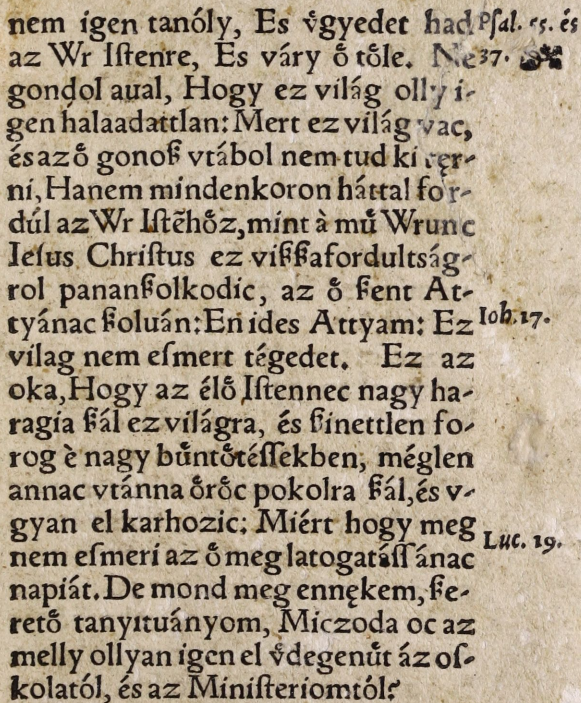 nem igen tanóly, Es v̊gyedet had
Pſal. 55. és
az Wr Iſtenre, Es váry o̊ to̊le. Ne
37.
gondol aual, Hogy ez világ olly i-
gen halaadattlan: Mert ez világ vac,
és az o̊ gonoß vtábol nem tud ki tęr-
ni, Hanem mindenkoron háttal for-
dúl az Wr Iſtēho̊z, mint à mu̇̊ Wrunc
Ieſus Chriſtus ez vißßafordultság-
rol pananßolkodic, az o̊ ßent At-
tyánac ßoluán: En ides Attyam: Ez
Ioh. 17.
vilag nem eſmert tégedet. Ez az
oka, Hogy az élo̊ Iſtennec nagy ha-
ragia ßál ez világra, és ßinettlen fo-
rog è nagy bůnto̊téſſekben, méglen
annac vtánna o̊ro̊c pokolra ßál, és v-
gyan el karhozic: Miért hogy meg
nem eſmeri az o̊ meg latogatáſſánac
Luc. 19.
napiát. De mond meg ennękem, ße-
reto̊ tanyituányom, Miczoda oc az
melly ollyan igen el v̊degenůt áz oſ-
kolatól, és az Miniſteriomtól?